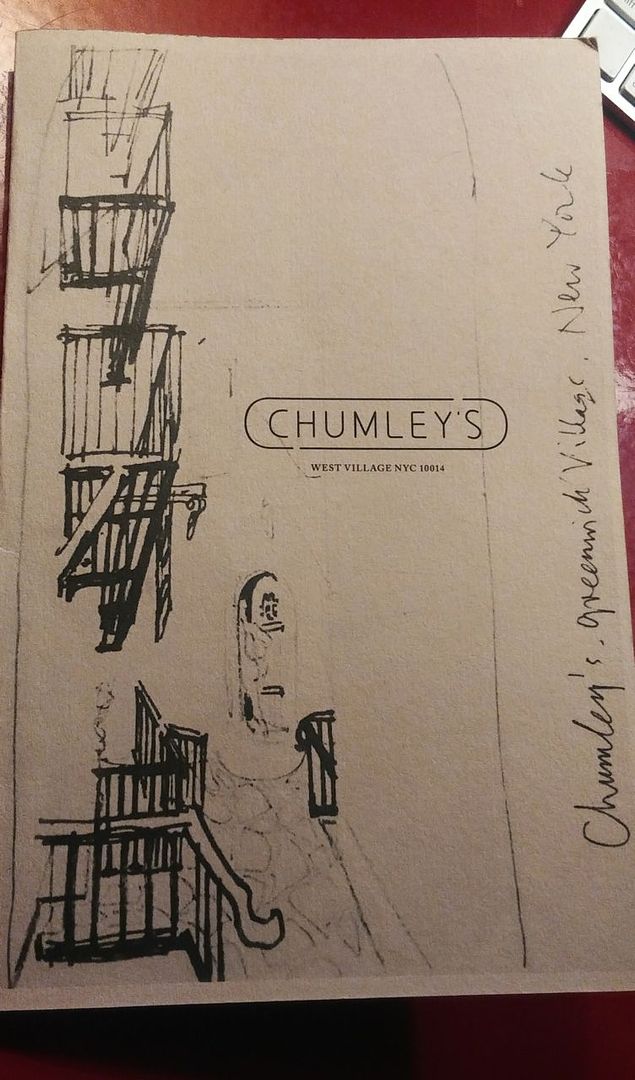 CHUMLEY'S
WEST VILLAGE NYC 10014
Chumley's. greenwich Village. New York